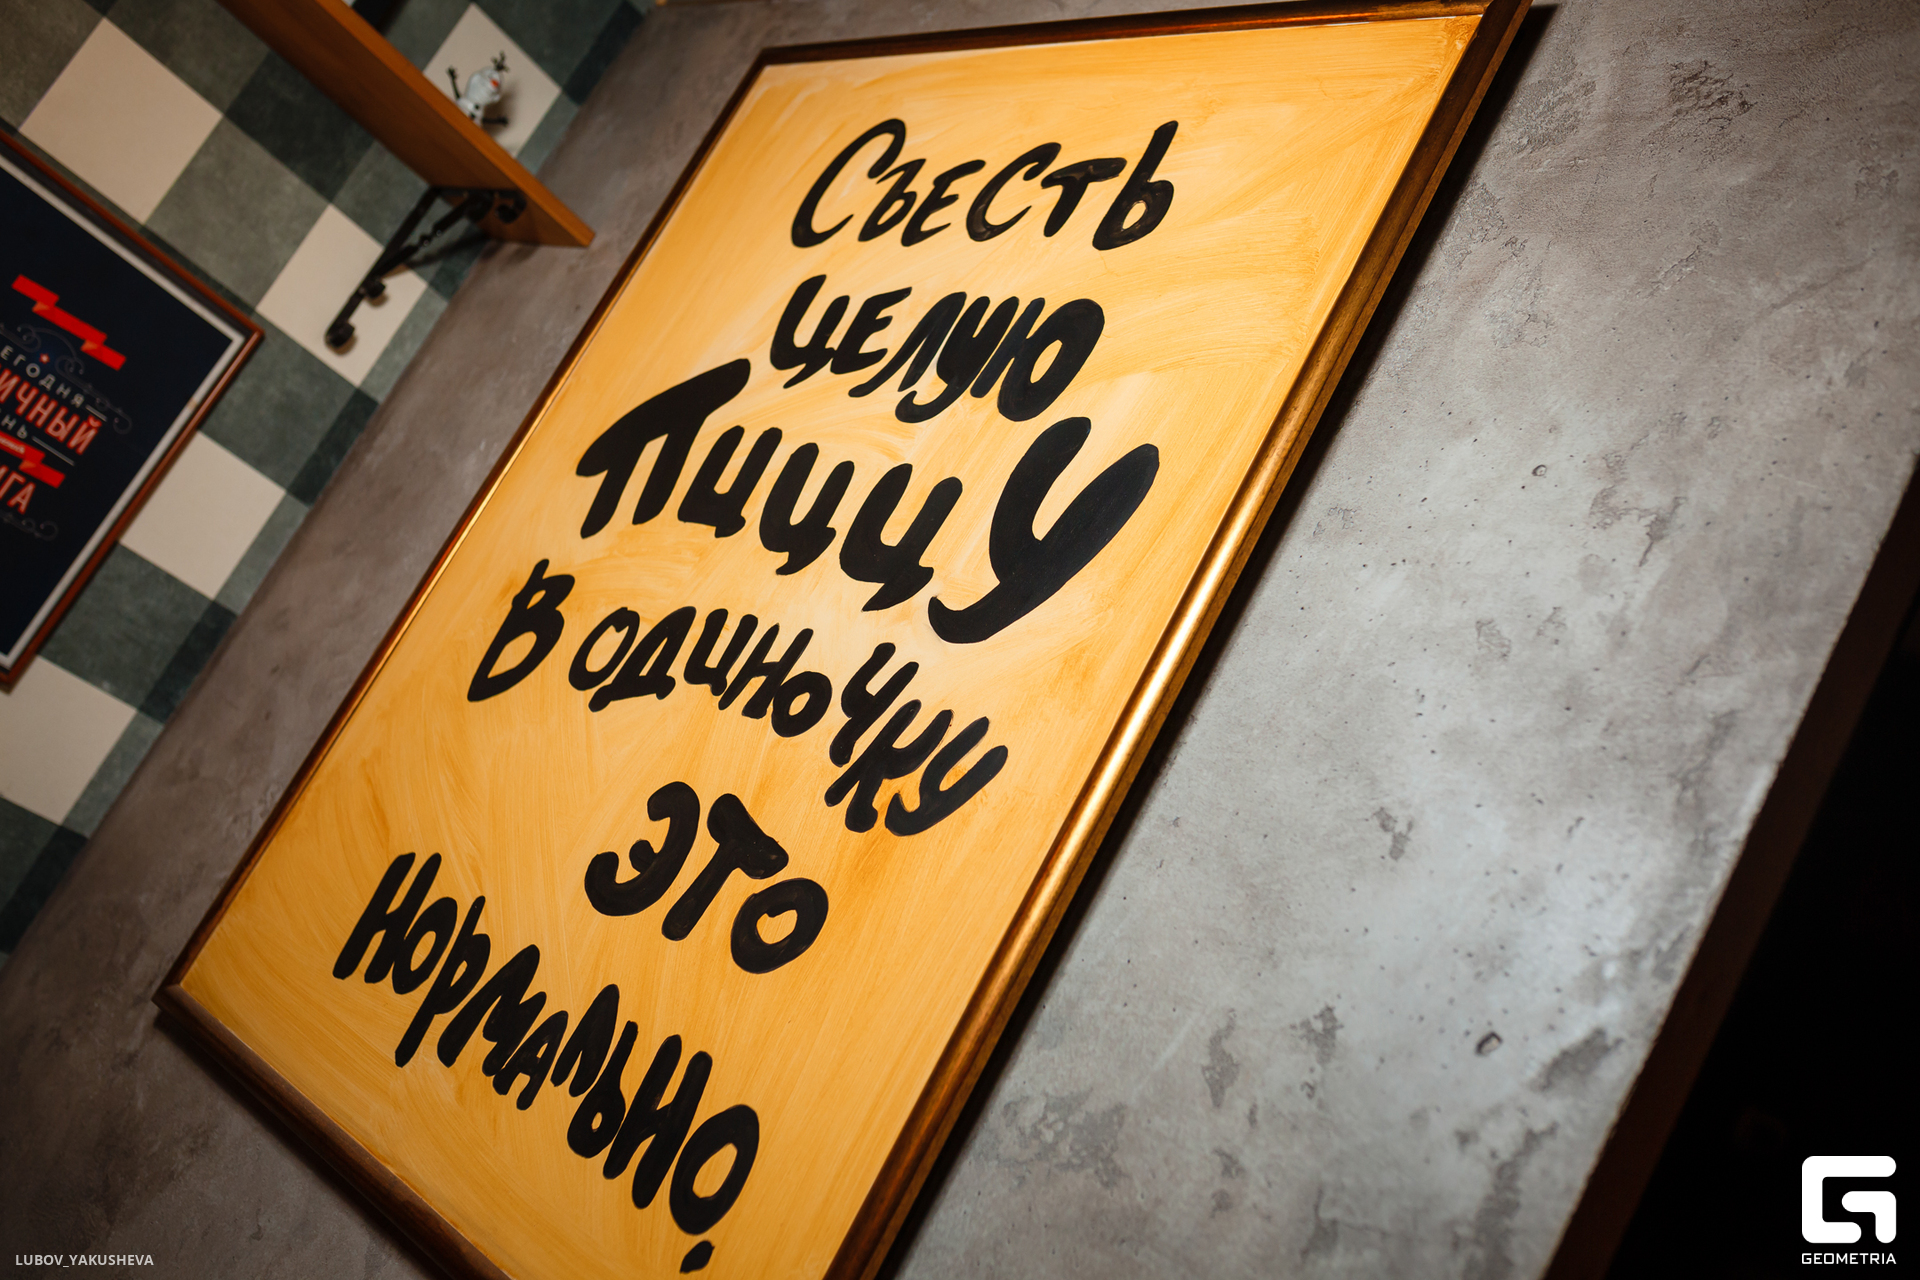 Съесть
целую
пиццу
в одиночку
это
нормально.
LUBOV_YAKUSHEVA
GEOMETRIA